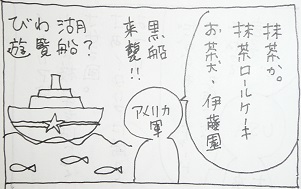 抹茶か。
抹茶ロールケーキ
お茶犬・伊藤園
黒船
来襲!!
アメリカ
軍
湖船?
びわ遊覧